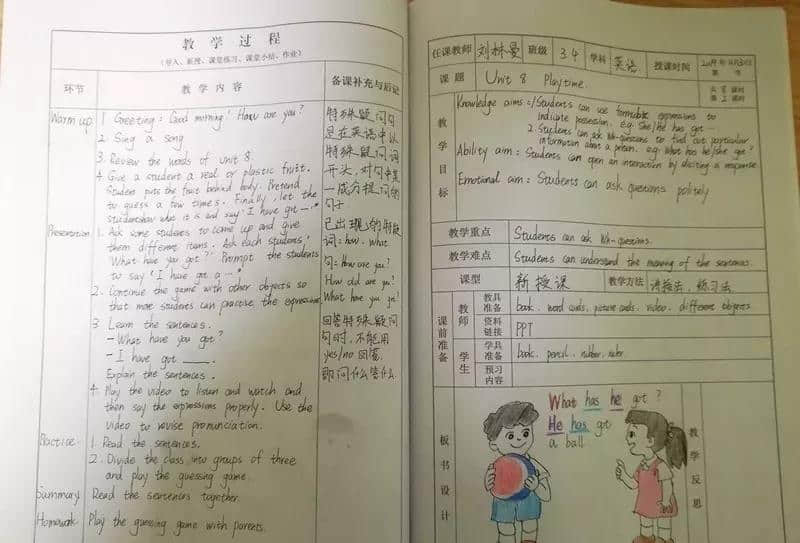 教学过程
(导入、新授、课堂练习、课堂小结、作业)
环节 教学内容 备课补充与后记
Warm up 1 Greeting: Good morning! How are you?
2 Sing a song
3 Review the words of Unit 8.
4 Give a student a real or plastic fruit.
Student puts the fruit behind body. Pretend
to guess a few times. Finally, let the
student show what it is and say 'I have got ...'
Presentation 1. Ask some students to come up and give
them different items. Ask each students,
'What have you got?' Prompt the students
to say 'I have got a ...'
2. Continue the game with other objects so
that more students can practise the expressions
3 Learn the sentences.
- What have you got?
- I have got ____.
Explain the sentences.
4. Play the video to listen and watch and
then say the expressions properly. Use the
video to revise pronunciation.
Practice 1. Read the sentences.
2. Divide the class into groups of three
and play the guessing game.
Summary Read the sentences together.
Homework Play the guessing game with parents.
特殊疑问句
是在英语中以
特殊疑问词
开头,对句中某
一成分提问的
句子
已出现的特疑
词:how. what
句:How are you?
How old are you?
What have you got?
回答特殊疑问
句时,不能用
yes/no回答.
即问什么答什么
任课教师 刘林曼 班级 3.4 学科 英语 授课时间 2019年
课题 Unit 8 Playtime.
教学目标
Knowledge aims: 1 Students can use formulaic expressions to
indicate possession. e.g. She/He has got ...
2. Students can ask wh-questions to find out particular
information about a person. e.g. What has he/she got?
Ability aim: Students can open an interaction by eliciting a response
Emotional aim: Students can ask questions politely
教学重点 Students can ask Wh-questions.
教学难点 Students can understand the meaning of the sentences.
课型 新授课 教学方法 讲授法、练习法
课前准备
教师 教具准备 book. word cards, picture cards. video. different objects
资料链接 PPT
学生 学具准备 book. pencil. rubber. ruler.
预习内容
板书设计
What has he got?
He has got
a ball
教学反思